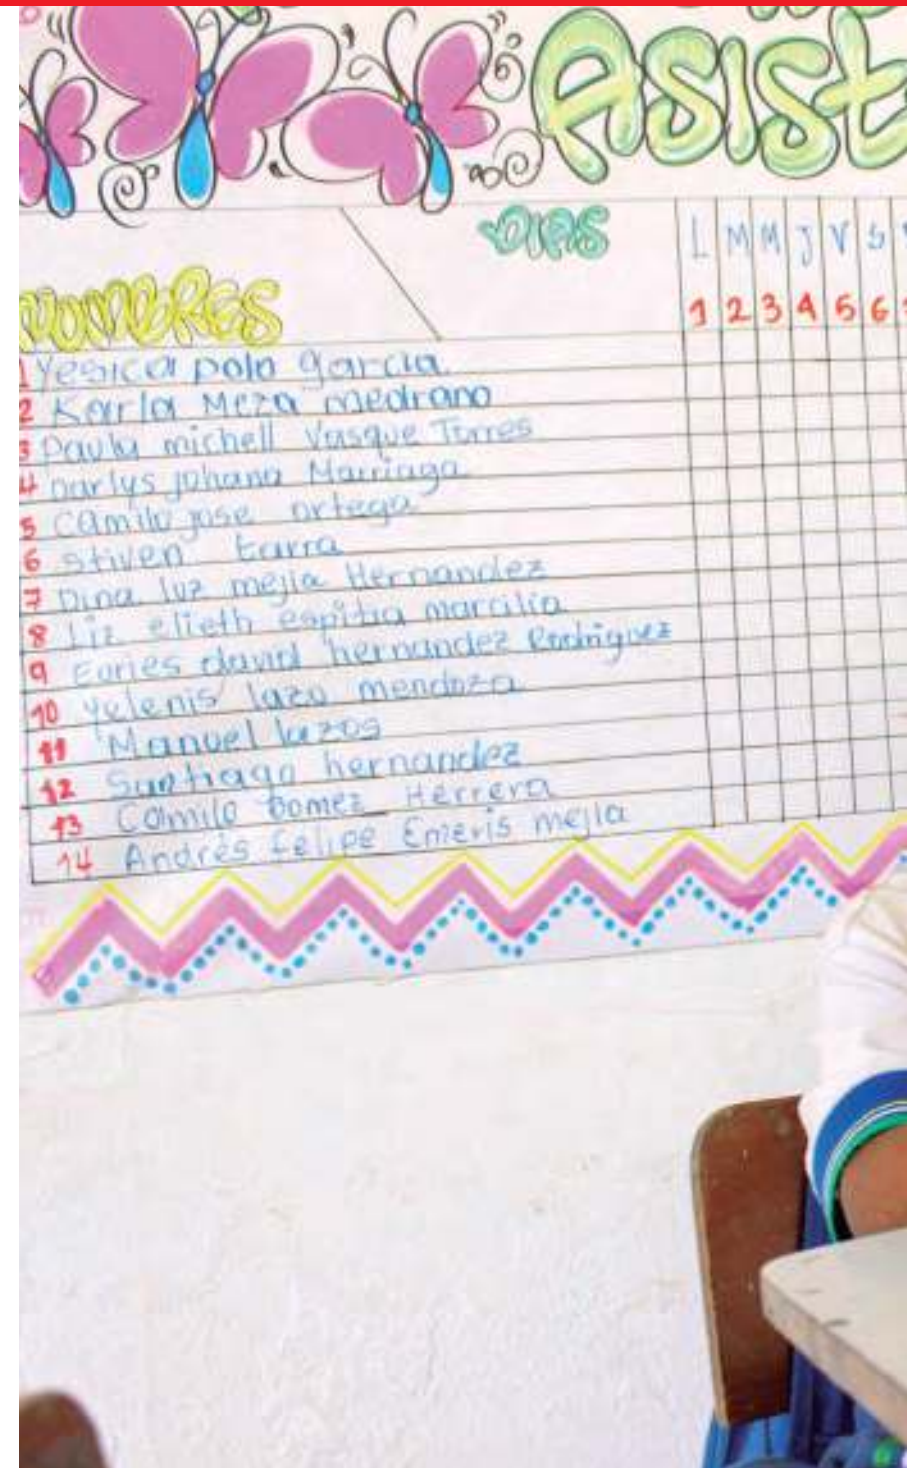 Asist
DIAS
L M M J V S
NOMBRES
1 2 3 4 5 6
1 Yesica polo garcia
2 Karla Meza medrano
3 Paula michell Vasque Torres
4 Darlys johana Marriaga
5 Camilo jose ortega
6 Stiven tarra
7 Dina luz mejia Hernandez
8 Liz elieth espitia
9 david hernandez Rodriguez
10 yelenis lazo mendoza
11 Manuel lazos
12 Santiago hernandez
13 Camilo Gomez Herrera
14 Andrés felipe mejia